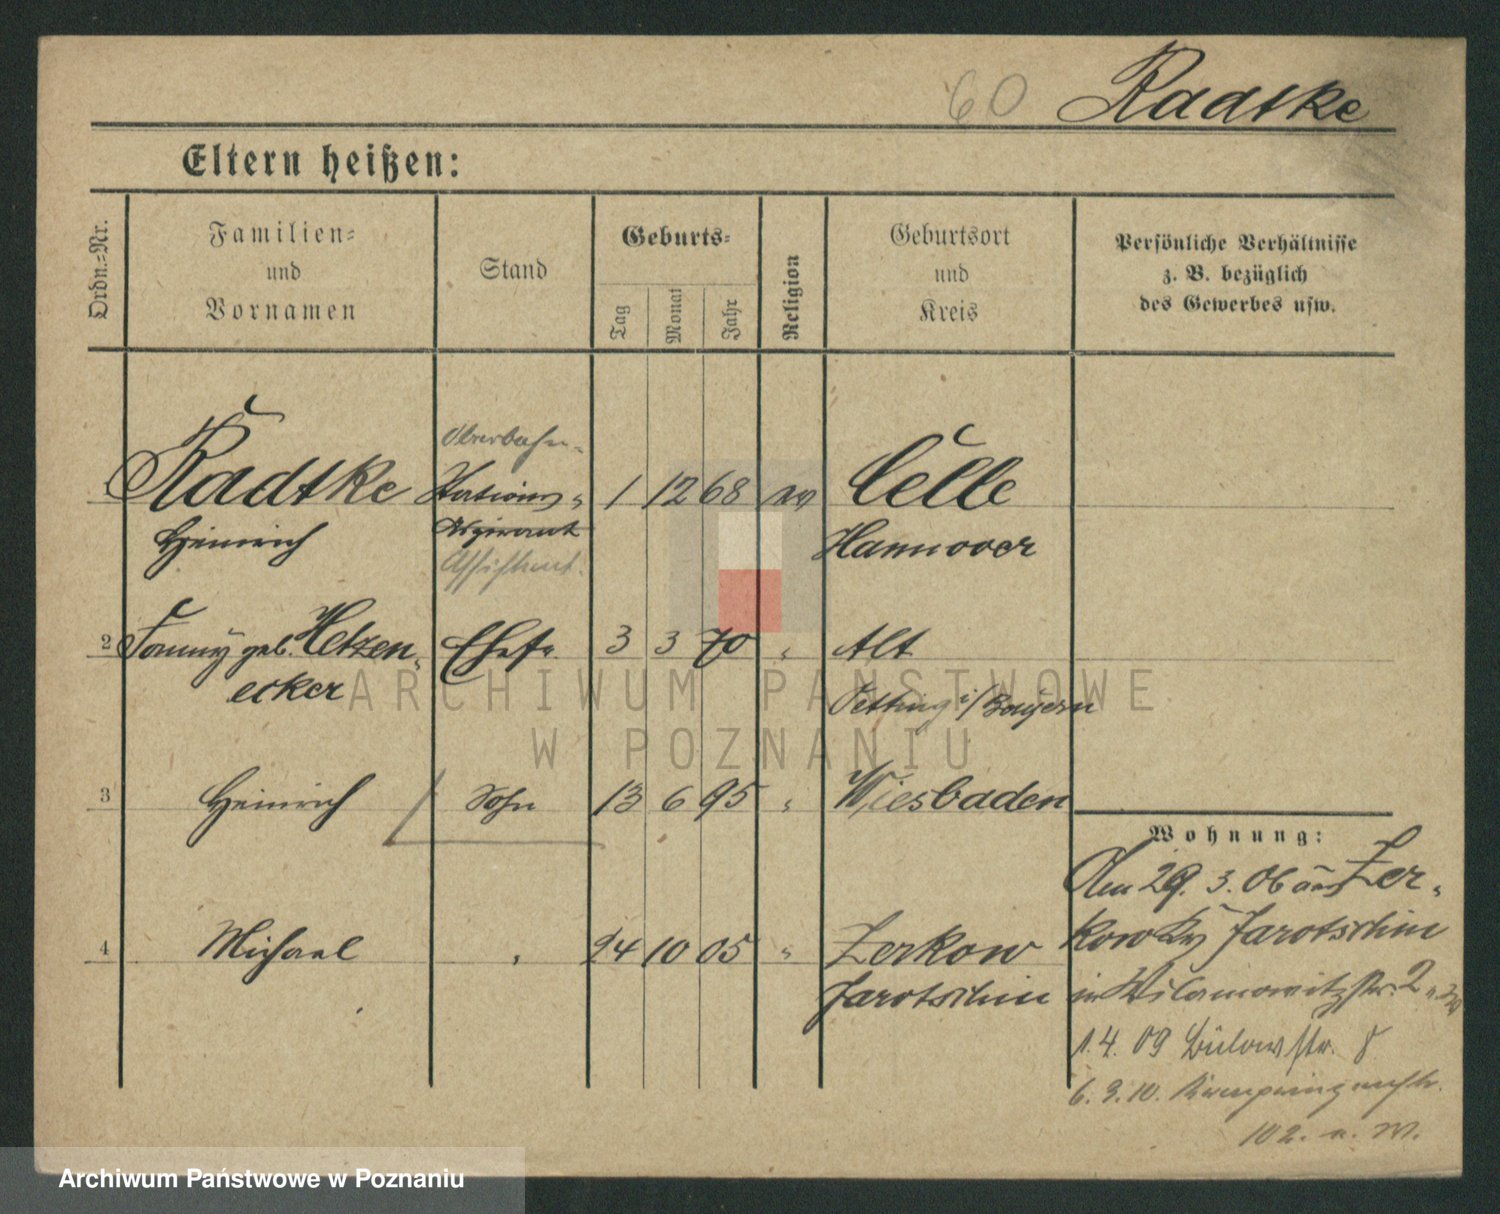 60 Radtke
Eltern heißen:
Ordn.-Nr.
Familien-
und
Vornamen
Stand
Geburts-
Tag
Monat
Jahr
Religion
Geburtsort
und
Kreis
Persönliche Verhältnisse
z. B. bezüglich
des Gewerbes usw.
Oberbahn-
1 Radtke Stations- 1 12 68 ev Celle
Heinrich Hannover
Assistent.
2 Fanny geb. Hetzen- Ehefr. 3 3 70 " Alt
ecker Oetting i/Bayern
3 Heinrich Sohn 13 6 95 " Wiesbaden
Wohnung:
Den 29. 3. 06 aus Zer-
4 Michael " 24 10 05 " Zerkow
kow Kr Jarotschin
Jarotschin
in Wilamowitzstr. 2
1. 4. 09 Bülowstr. 8
6. 3. 10. Kronprinzenstr.
102. a. W.
ARCHIWUM PAŃSTWOWE
W POZNANIU
Archiwum Państwowe w Poznaniu